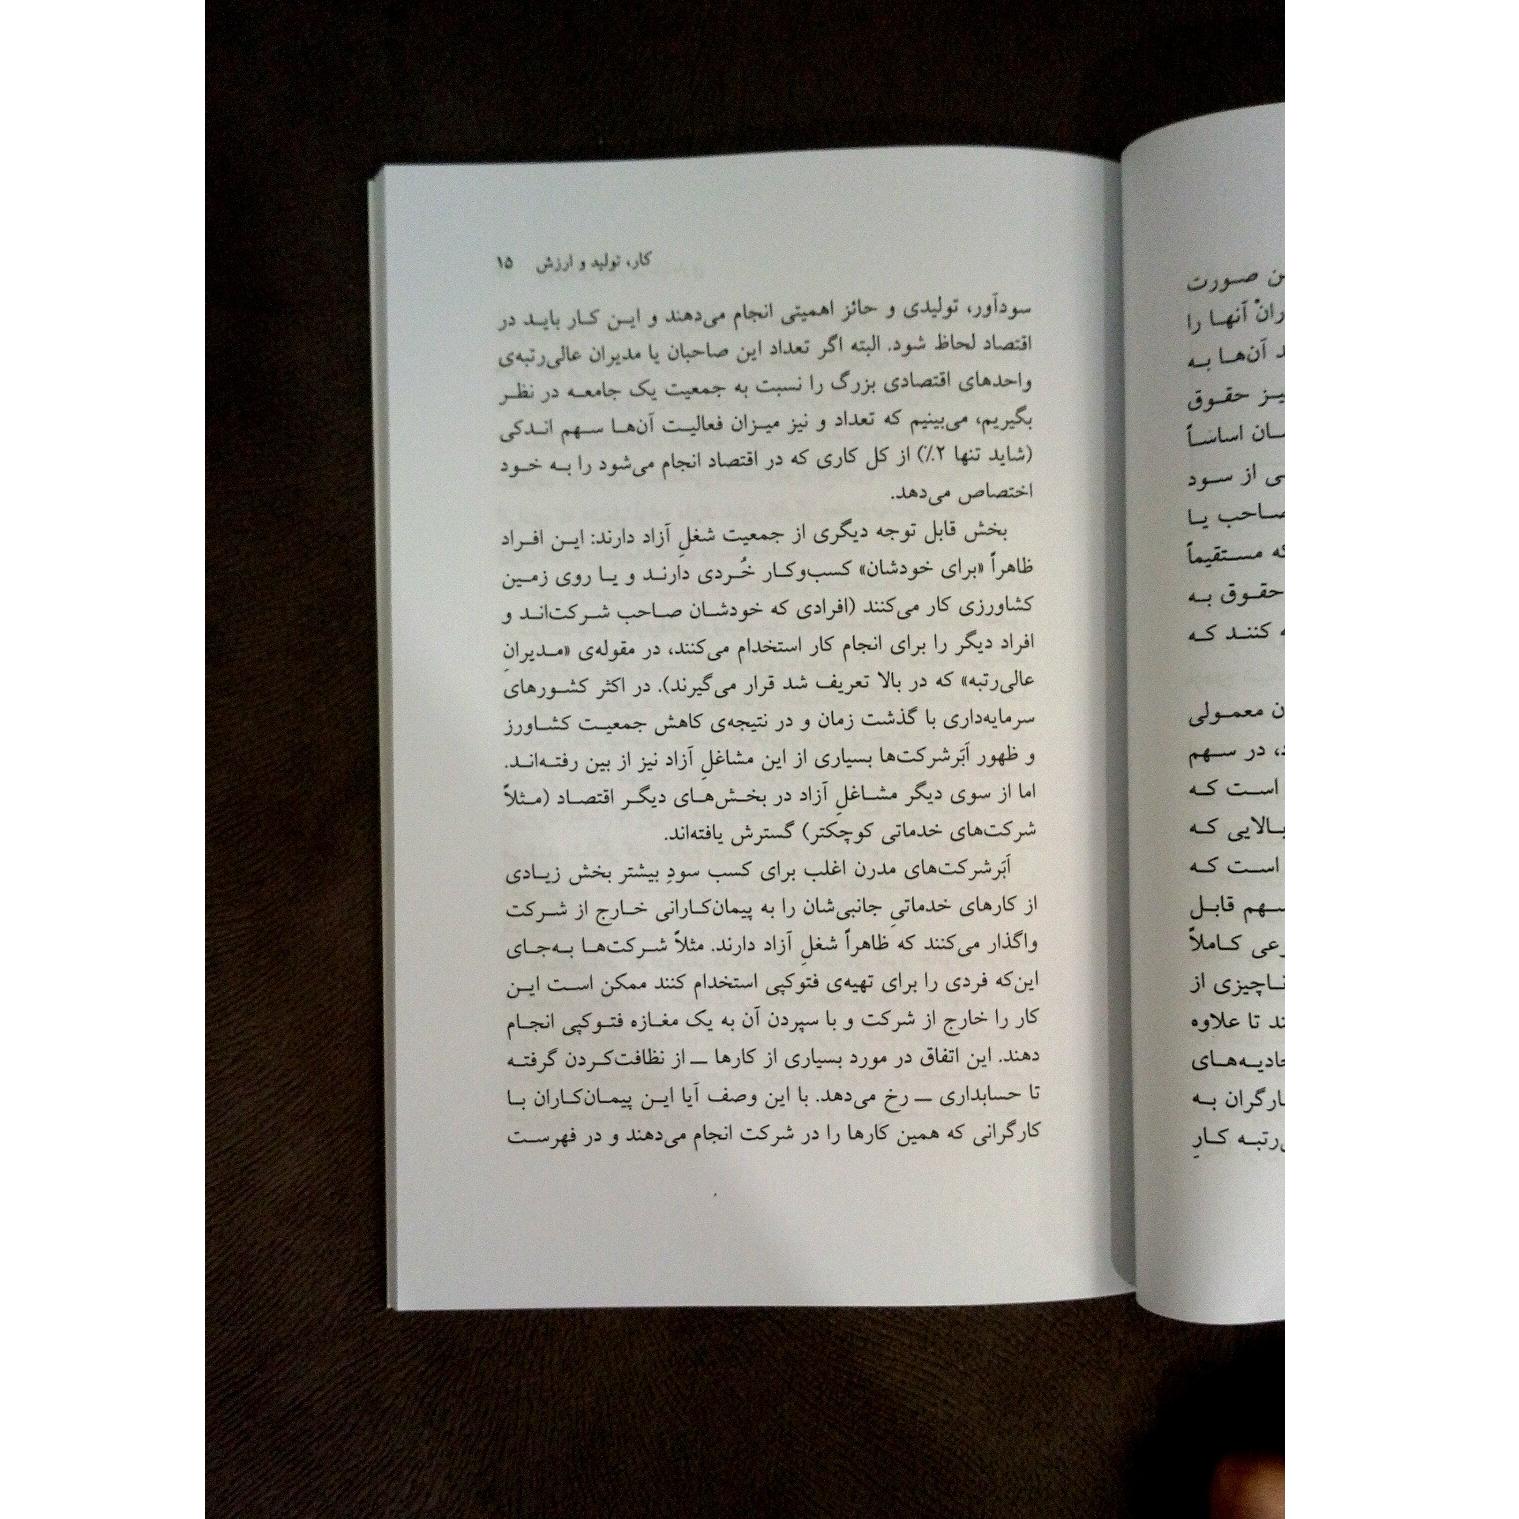 کار، تولید و ارزش ۱۵
سودآور، تولیدی و حائز اهمیتی انجام می‌دهند و این کار باید در
اقتصاد لحاظ شود. البته اگر تعداد این صاحبان یا مدیران عالی‌رتبه‌ی
واحدهای اقتصادی بزرگ را نسبت به جمعیت یک جامعه در نظر
بگیریم، می‌بینیم که تعداد و نیز میزان فعالیت آن‌ها سهم اندکی
(شاید تنها ۲٪) از کل کاری که در اقتصاد انجام می‌شود را به خود
اختصاص می‌دهد.
بخش قابل توجه دیگری از جمعیت شغلِ آزاد دارند: این افراد
ظاهراً «برای خودشان» کسب‌وکار خُردی دارند و یا روی زمین
کشاورزی کار می‌کنند (افرادی که خودشان صاحب شرکت‌اند و
افراد دیگر را برای انجام کار استخدام می‌کنند، در مقوله‌ی «مدیرانِ
عالی‌رتبه» که در بالا تعریف شد قرار می‌گیرند). در اکثر کشورهای
سرمایه‌داری با گذشت زمان و در نتیجه‌ی کاهش جمعیت کشاورز
و ظهور اَبَرشرکت‌ها بسیاری از این مشاغلِ آزاد نیز از بین رفته‌اند.
اما از سوی دیگر مشاغلِ آزاد در بخش‌های دیگر اقتصاد (مثلاً
شرکت‌های خدماتی کوچکتر) گسترش یافته‌اند.
اَبَرشرکت‌های مدرن اغلب برای کسب سودِ بیشتر بخش زیادی
از کارهای خدماتیِ جانبی‌شان را به پیمان‌کارانی خارج از شرکت
واگذار می‌کنند که ظاهراً شغلِ آزاد دارند. مثلاً شرکت‌ها به‌جای
این‌که فردی را برای تهیه‌ی فتوکپی استخدام کنند ممکن است این
کار را خارج از شرکت و با سپردن آن به یک مغازه فتوکپی انجام
دهند. این اتفاق در مورد بسیاری از کارها ــ از نظافت‌کردن گرفته
تا حسابداری ــ رخ می‌دهد. با این وصف آیا این پیمان‌کاران با
کارگرانی که همین کارها را در شرکت انجام می‌دهند و در فهرست
صورت
آنها را
آن‌ها به
حقوق
اساساً
از سود
یا
مستقیماً
حقوق به
کنند که
معمولی
در سهم
است که
که
است که
قابل
کاملاً
از
تا علاوه
به
کارِ